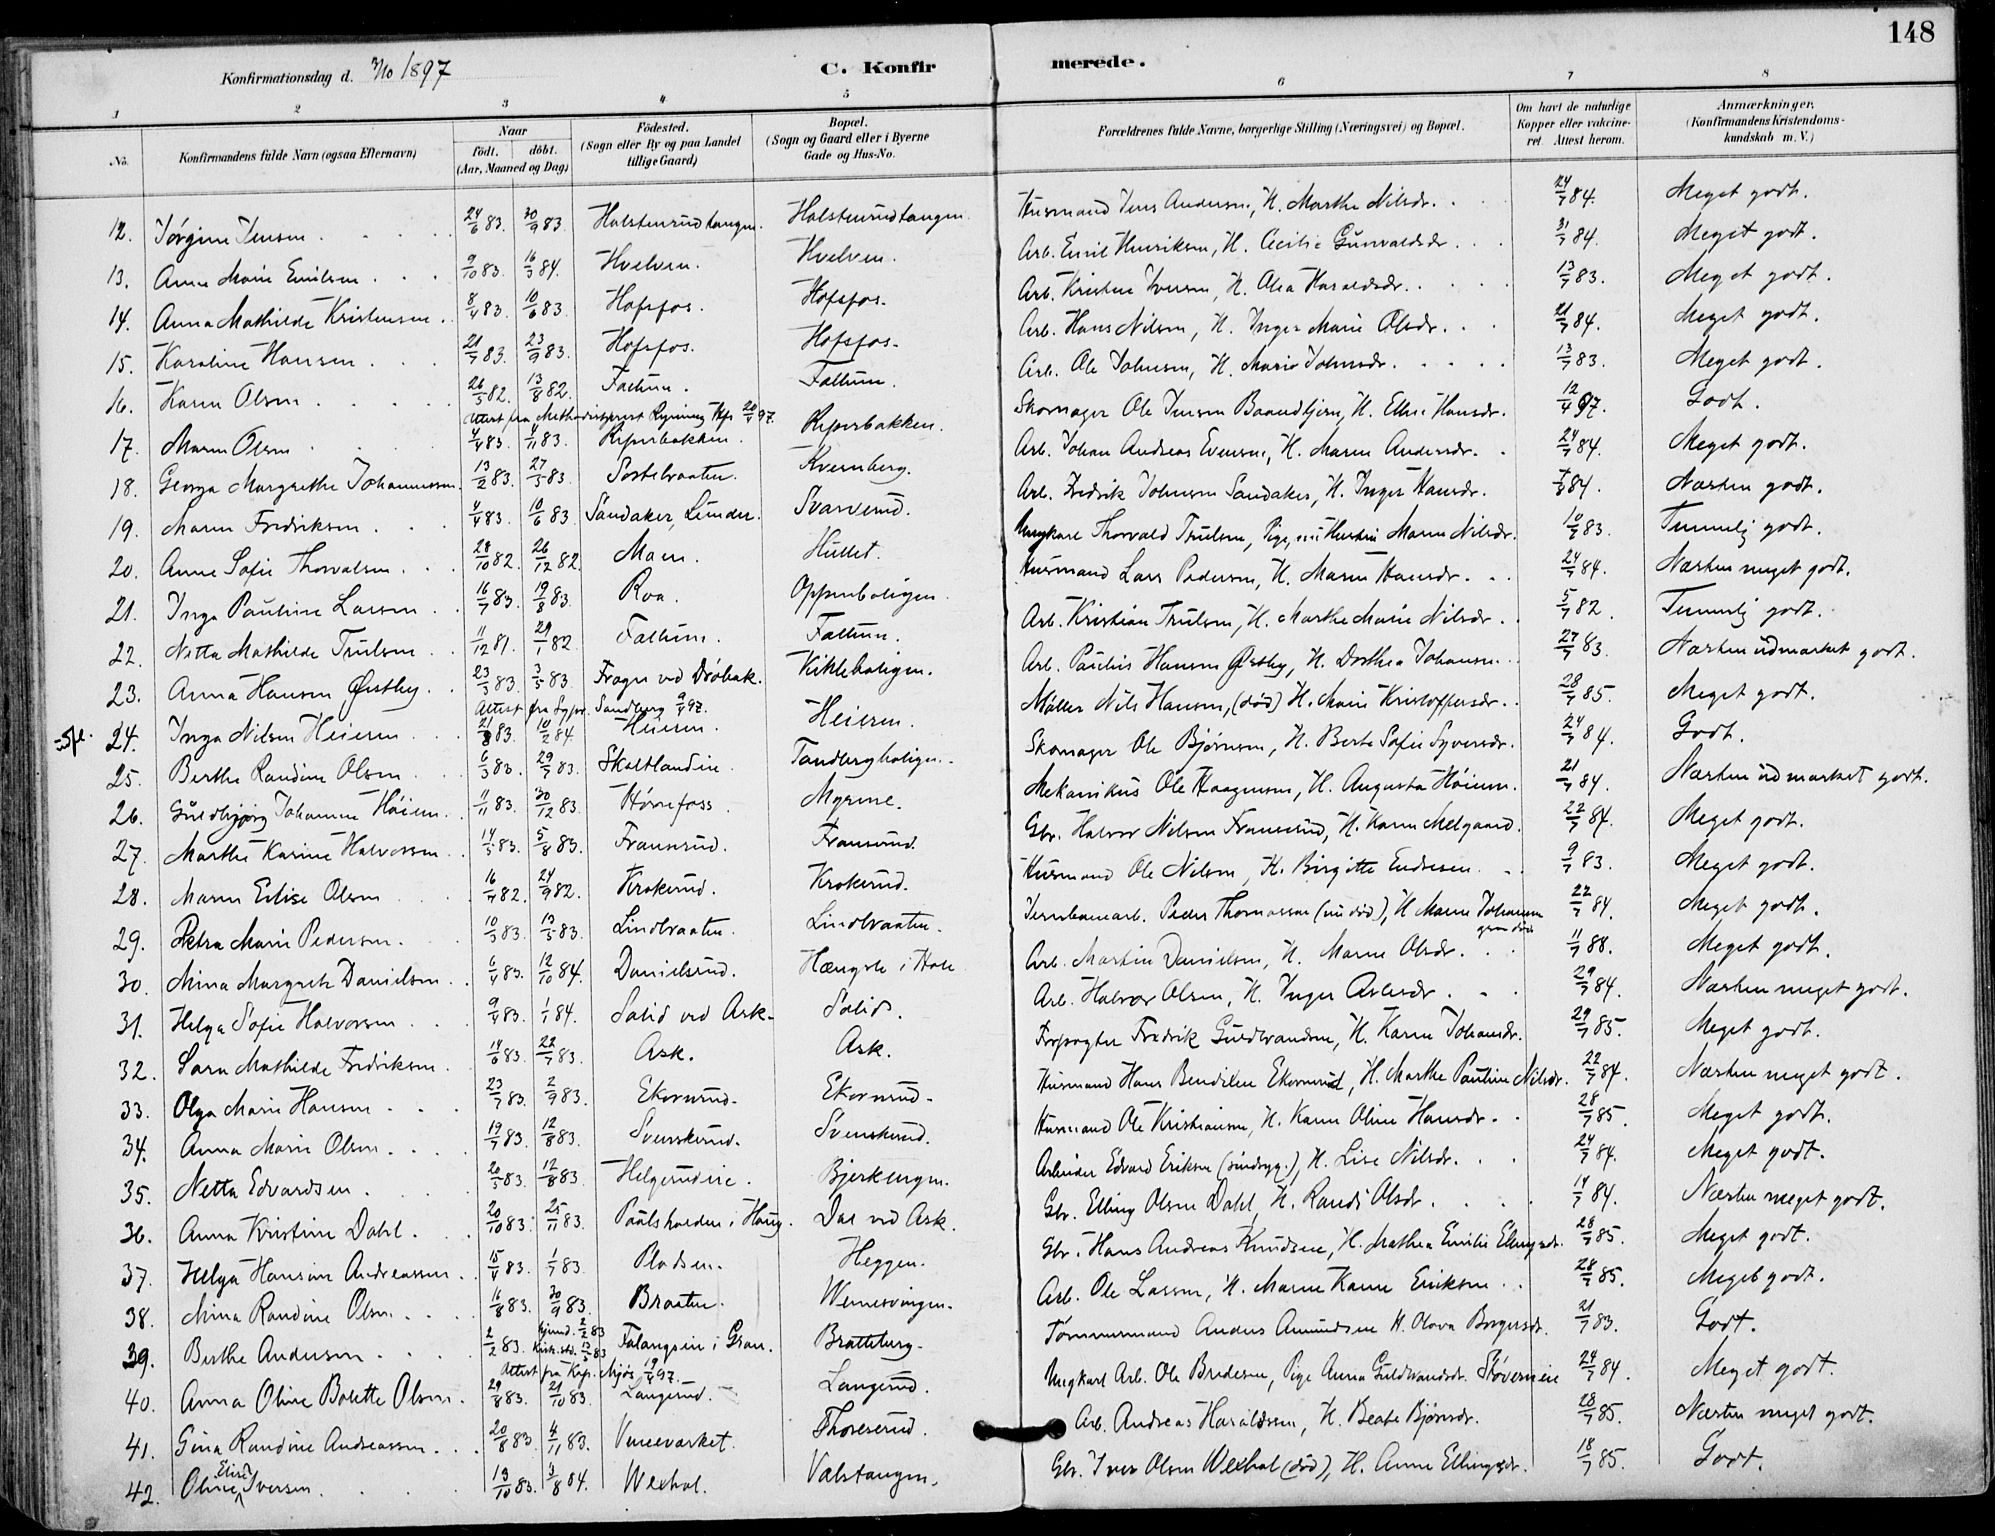 148
Konfirmationsdag d. 3/10 1897 C. Konfirmerede.
1 2 3 4 5 6 7 8
No. Konfirmandens fulde Navn (ogsaa Efternavn) Naar födt. döbt. (Aar, Maaned og Dag) Födested. (Sogn eller By og paa Landet tillige Gaard) Bopæl. (Sogn og Gaard eller i Byerne Gade og Hus-No. Forældrenes fulde Navne, borgerlige Stilling (Næringsvei) og Bopæl. Om havt de naturlige Kopper eller vakcineret Attest herom. Anmærkninger. (Konfirmandens Kristendomskundskab m. V.)
12. Jørgine Jensen 24/6 83. 30/9 83 Halstenrudtangen. Halstenrudtangen Husmand Jens Andersen, H. Marthe Nilsdr. 24/7 84. Meget godt.
13. Anne Marie Emilsen 9/10 83. 16/3 84. Hvelven. Hvelven. Arb. Emil Henriksen, H. Cecilie Gunvaldsdr. 31/7 84. Meget godt.
14. Anna Mathilde Kristensen. 8/4 83. 10/6 83. Hofsfos. Hofsfos. Arb. Kristen Iversen, H. Olea Haraldsdr. 13/7 83. Meget godt.
15. Karoline Hansen 21/7 83. 23/9 83. Hofsfos. Hofsfos. Arb. Hans Nilsen, H. Inger Marie Olsdr. 21/7 84. Meget godt.
16. Karen Olsen 26/5 82. 13/8 82. Fallum. Fallum. Arb. Ole Johnsen, H. Marie Johnsdr. 13/7 83. Meget godt.
Attest fra Methodistprest Rynning 20/4 97.
17. Maren Olsen 4/4 83. 4/11 83. Ripirbakken. Ripirbakken. Skomager Ole Jensen Baandbjern, H. Ellise Hansdr. 12/4 97. Godt.
18. Georga Margrethe Johannessen. 13/2 83. 27/5 83. Sostebraaten. Kvernberg. Arb. Johan Andreas Evensen, H. Maren Andersdr. 24/7 84. Meget godt.
19. Maren Fredriksen 4/4 83. 10/6 83. Sandaker, Lunder. Svarverud. Arb. Fredrik Johnsen Sandaker, H. Inger Hansdr. 84. Næsten godt.
20. Anne Sofie Thorvalsen 28/10 82. 26/12 82. Moen. Hullet. Ungkarl Thorvald Trulsen, Pige, nu Hustru Maren Nilsdr. 10/7 83. Temmelig godt.
21. Inga Pauline Larsen 16/7 83. 19/8 83. Roa. Oppenboligen. Husmand Lars Pedersen, H. Maren Hansdr. 24/7 84. Næsten meget godt.
22. Netta Mathilde Trulsen 11/12 81. 29/1 82. Fallum. Fallum. Arb. Kristian Trulsen, H. Marthe Marie Nilsdr. 5/7 82. Temmelig godt.
23. Anna Hansen Østby. 23/3 83. 3/5 83. Frogn ved Drøbak. Vikleboligen. Arb. Paulus Hansen Østby, H. Dorthea Johansen. 27/7 83. Næsten udmærket godt.
Attest fra Sgpr. Sandberg 9/4 97.
24. Inga Nilsen Heieren 21/8 83. 10/2 84. Heieren. Heieren. Møller Nils Hansen, (død) H. Marie Kristoffersdr. 28/7 85. Meget godt.
25. Berthe Randine Olsen 6/3 83. 29/7 83. Skoltlandeie. Tandbergboligen. Skomager Ole Bjørnsen, H. Berte Sofie Syversdr. 24/7 84. Godt.
26. Guldbjørg Johanne Høiem. 11/11 83. 30/12 83. Hønefoss. Myrene. Mekanikus Ole Haagensen, H. Augusta Høiem. 21/7 84. Næsten udmærket godt.
27. Marthe Karine Halvorsen 14/5 83. 5/8 83. Fransrud. Fransrud. Gbr. Halvor Nilsen Fransrud, H. Karen Melgaard. 22/7 84. Meget godt.
28. Maren Elise Olsen 16/7 82. 24/9 82. Krokerud. Krokerud. Husmand Ole Nilsen, H. Birgitte Endresen. 9/7 83. Meget godt.
29. Petra Marie Pedersen. 10/3 83. 13/5 83. Lindbraaten. Lindbraaten. Jernbanearb. Peder Thomassen (nu død), H. Maren Johannesen 22/7 84. Meget godt.
30. Mina Margrete Danielsen. 6/4 83. 12/10 84. Danielsrud. Hængsle i Hole Arb. Martin Danielsen, H. Maren Olsdr. 11/7 88. Meget godt.
31. Helga Sofie Halvorsen 9/4 83. 1/1 84. Solid ved Ask. Solid. Arb. Halvor Olsen, H. Inger Arlesdr. 29/7 84. Næsten meget godt.
32. Sara Mathilde Fredriksen. 14/6 83. 22/7 83. Ask. Ask. Forpagter Fredrik Guldbrandsen, H. Karen Johansdr. 29/7 85. Meget godt.
33. Olga Marie Hansen 23/7 83. 2/9 83. Ekornrud. Ekornrud. Husmand Hans Bendiksen Ekornrud, H. Marthe Pauline Nilsdr. 22/7 84. Næsten meget godt.
34. Anna Marie Olsen 19/7 83. 12/8 83. Svenskerud. Svenskerud. Husmand Ole Kristiansen, H. Karen Oline Hansdr. 28/7 85. Meget godt.
35. Netta Edvardsen. 20/5 83. 12/8 83. Helgerudeie. Bjerkengen. Arbeider Edvard Eriksen (sindsyg.), H. Lise Nilsdr. 24/7 84. Meget godt.
36. Anna Kristine Dahl. 20/10 83. 25/11 83. Paalshalden i Haug. Dal ved Ask. Gbr. Elling Olsen Dahl, H. Randi Olsdr. 14/7 84. Næsten meget godt.
37. Helga Hansine Andreassen. 15/4 83. 1/7 83. Pladsen. Heggen. Gbr. Hans Andreas Knudsen, H. Mathea Emilie Ellingsdr. 28/7 85. Meget godt.
38. Mina Randine Olsen. 16/8 83. 30/9 83. Braaten. Wemesvingen. Arb. Ole Larsen, H. Maren Karine Eriksen. 28/7 85. Meget godt.
39. Berthe Andersen 2/2 83. hjemd. 2/2 83 Kirk. std. 13/5 83 Falangseie i Gran. Bratteberg. Tømmermand Anders Amundsen H. Olava Borgersdr. 21/7 83. Godt.
Attest fra Kap. Mjøs 19/4 97.
40. Anna Oline Bolette Olsen. 29/8 83. 21/10 83. Langerud. Langerud. Ungkarl Arb. Ole Bredesen, Pige Anna Guldbrandsdr. Støverneie 24/7 84. Meget godt.
41. Gina Randine Andreassen. 20/8 83. 4/11 83. Venevorket. Thorerud. Arb. Andreas Haraldsen, H. Beate Bjørnsdr. 28/7 85. Næsten meget godt.
42. Oline Elise Iversen. 13/10 83. 3/8 84. Wexhal. Valstangen. Gbr. Iver Olsen Wexhal (død), H. Anne Ellingsdr. 18/7 85. Godt.